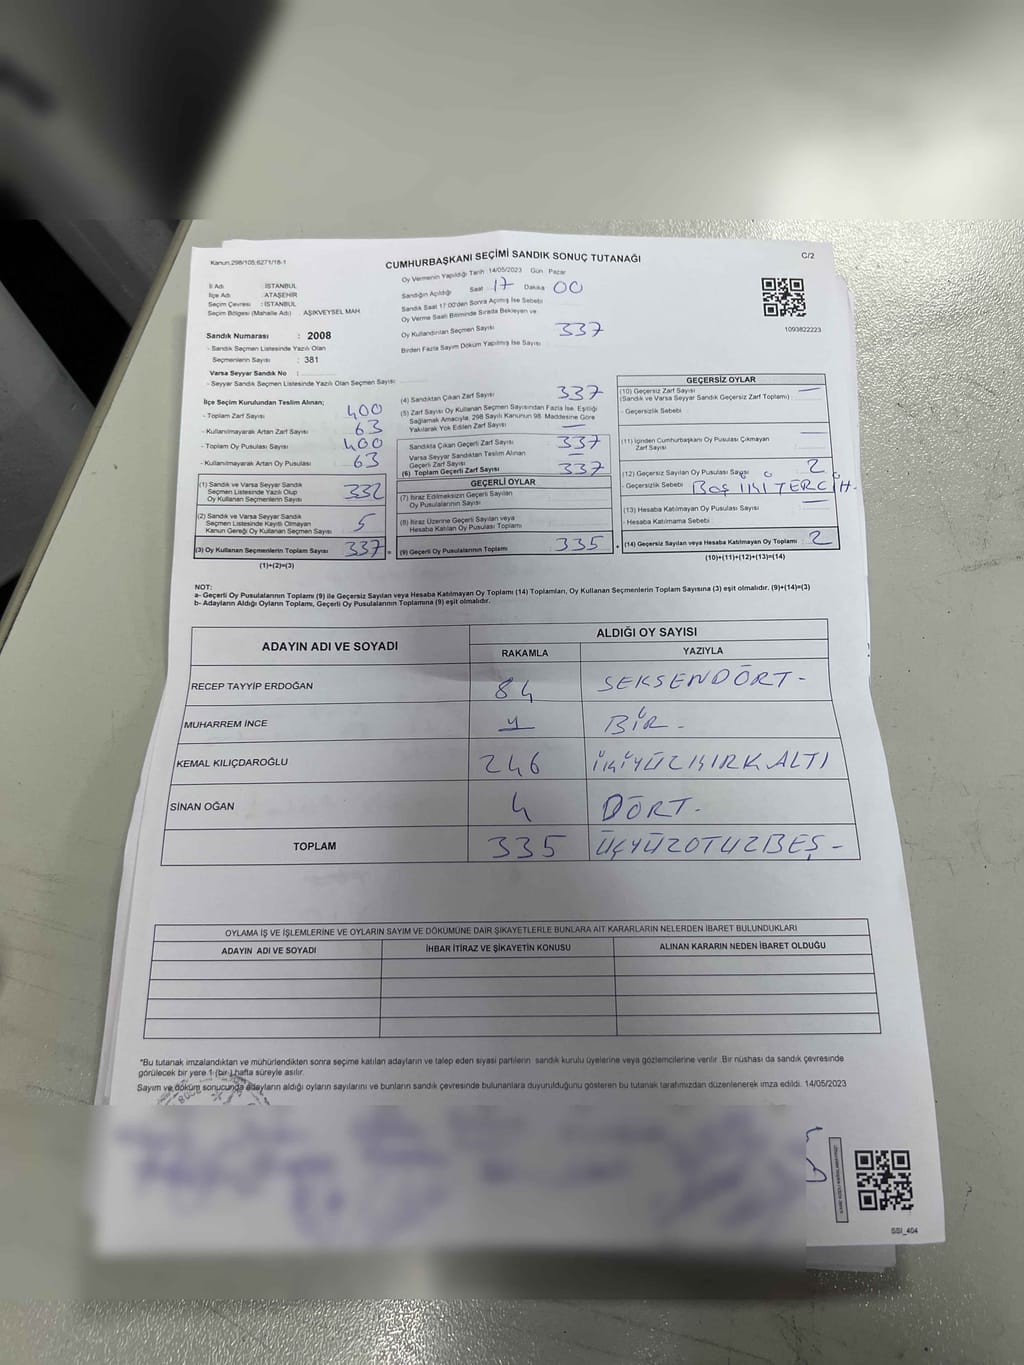 Kanun.298/105;6271/18-1
CUMHURBAŞKANI SEÇİMİ SANDIK SONUÇ TUTANAĞI
C/2
İl Adı : İSTANBUL
İlçe Adı : ATAŞEHİR
Seçim Çevresi : İSTANBUL
Seçim Bölgesi (Mahalle Adı) : AŞIKVEYSEL MAH
Sandık Numarası : 2008
- Sandık Seçmen Listesinde Yazılı Olan
Seçmenlerin Sayısı : 381
Varsa Seyyar Sandık No :
- Seyyar Sandık Seçmen Listesinde Yazılı Olan Seçmen Sayısı
Oy Vermenin Yapıldığı Tarih :14/05/2023 Gün : Pazar
Sandığın Açıldığı Saat 17 Dakika 00
Sandık Saat 17:00'den Sonra Açılmış İse Sebebi
Oy Verme Saati Bitiminde Sırada Bekleyen ve
Oy Kullandırılan Seçmen Sayısı 337
Birden Fazla Sayım Döküm Yapılmış İse Sayısı
1093822223
İlçe Seçim Kurulundan Teslim Alınan;
- Toplam Zarf Sayısı 400
- Kullanılmayarak Artan Zarf Sayısı 63
- Toplam Oy Pusulası Sayısı 400
- Kullanılmayarak Artan Oy Pusulası 63
(1) Sandık ve Varsa Seyyar Sandık
Seçmen Listesinde Yazılı Olup
Oy Kullanan Seçmenlerin Sayısı 332
(2) Sandık ve Varsa Seyyar Sandık
Seçmen Listesinde Kayıtlı Olmayan
Kanun Gereği Oy Kullanan Seçmen Sayısı 5
(3) Oy Kullanan Seçmenlerin Toplam Sayısı 337 =
(1)+(2)=(3)
(4) Sandıktan Çıkan Zarf Sayısı 337
(5) Zarf Sayısı Oy Kullanan Seçmen Sayısından Fazla İse, Eşitliği
Sağlamak Amacıyla, 298 Sayılı Kanunun 98. Maddesine Göre
Yakılarak Yok Edilen Zarf Sayısı —
Sandıkta Çıkan Geçerli Zarf Sayısı 337
Varsa Seyyar Sandıktan Teslim Alınan
Geçerli Zarf Sayısı —
(6) Toplam Geçerli Zarf Sayısı 337
GEÇERLİ OYLAR
(7) İtiraz Edilmeksizin Geçerli Sayılan
Oy Pusulalarının Sayısı
(8) İtiraz Üzerine Geçerli Sayılan veya
Hesaba Katılan Oy Pusulası Toplamı
(9) Geçerli Oy Pusulalarının Toplamı 335 +
GEÇERSİZ OYLAR
(10) Geçersiz Zarf Sayısı —
(Sandık ve Varsa Seyyar Sandık Geçersiz Zarf Toplamı)
- Geçersizlik Sebebi
(11) İçinden Cumhurbaşkanı Oy Pusulası Çıkmayan
Zarf Sayısı —
(12) Geçersiz Sayılan Oy Pusulası Sayısı 2
- Geçersizlik Sebebi BOŞ İKİ TERCİH-
(13) Hesaba Katılmayan Oy Pusulası Sayısı —
- Hesaba Katılmama Sebebi
(14) Geçersiz Sayılan veya Hesaba Katılmayan Oy Toplamı : 2
(10)+(11)+(12)+(13)=(14)
NOT:
a- Geçerli Oy Pusulalarının Toplamı (9) ile Geçersiz Sayılan veya Hesaba Katılmayan Oy Toplamı (14) Toplamları, Oy Kullanan Seçmenlerin Toplam Sayısına (3) eşit olmalıdır. (9)+(14)=(3)
b- Adayların Aldığı Oyların Toplamı, Geçerli Oy Pusulalarının Toplamına (9) eşit olmalıdır.
ADAYIN ADI VE SOYADI
ALDIĞI OY SAYISI
RAKAMLA YAZIYLA
RECEP TAYYİP ERDOĞAN 84 SEKSENDÖRT-
MUHARREM İNCE 1 BİR-
KEMAL KILIÇDAROĞLU 246 İKİYÜZKIRKALTI
SİNAN OĞAN 4 DÖRT-
TOPLAM 335 ÜÇYÜZOTUZBEŞ-
OYLAMA İŞ VE İŞLEMLERİNE VE OYLARIN SAYIM VE DÖKÜMÜNE DAİR ŞİKAYETLERLE BUNLARA AİT KARARLARIN NELERDEN İBARET BULUNDUKLARI
ADAYIN ADI VE SOYADI İHBAR İTİRAZ VE ŞİKAYETİN KONUSU ALINAN KARARIN NEDEN İBARET OLDUĞU
*Bu tutanak imzalandıktan ve mühürlendikten sonra seçime katılan adayların ve talep eden siyasi partilerin sandık kurulu üyelerine veya gözlemcilerine verilir. Bir nüshası da sandık çevresinde
görülecek bir yere 1 (bir) hafta süreyle asılır.
Sayım ve döküm sonucunda adayların aldığı oyların sayılarını ve bunların sandık çevresinde bulunanlara duyurulduğunu gösteren bu tutanak tarafımızdan düzenlenerek imza edildi. 14/05/2023
2008
SSI_404